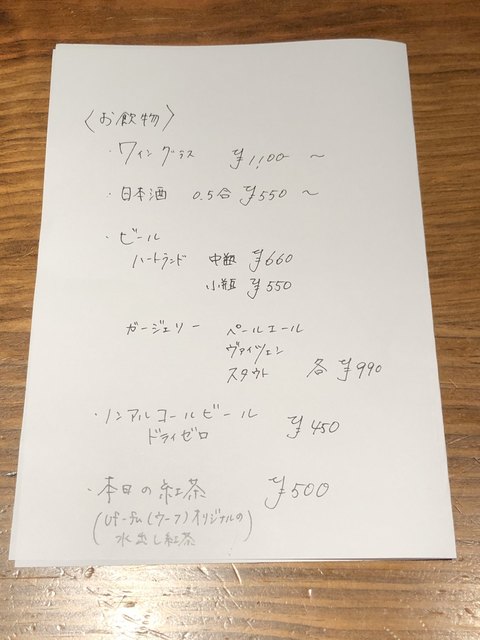 〈お飲物〉
・ワイン グラス ¥1,100 〜
・日本酒 0.5合 ¥550 〜
・ビール
ハートランド 中瓶 ¥660
小瓶 ¥550
ガージェリー ペールエール
ヴァイツェン
スタウト 各 ¥990
・ノンアルコールビール
ドライゼロ ¥450
・本日の紅茶 ¥500
(Uf-fu(ウーフ)オリジナルの
水出し紅茶)